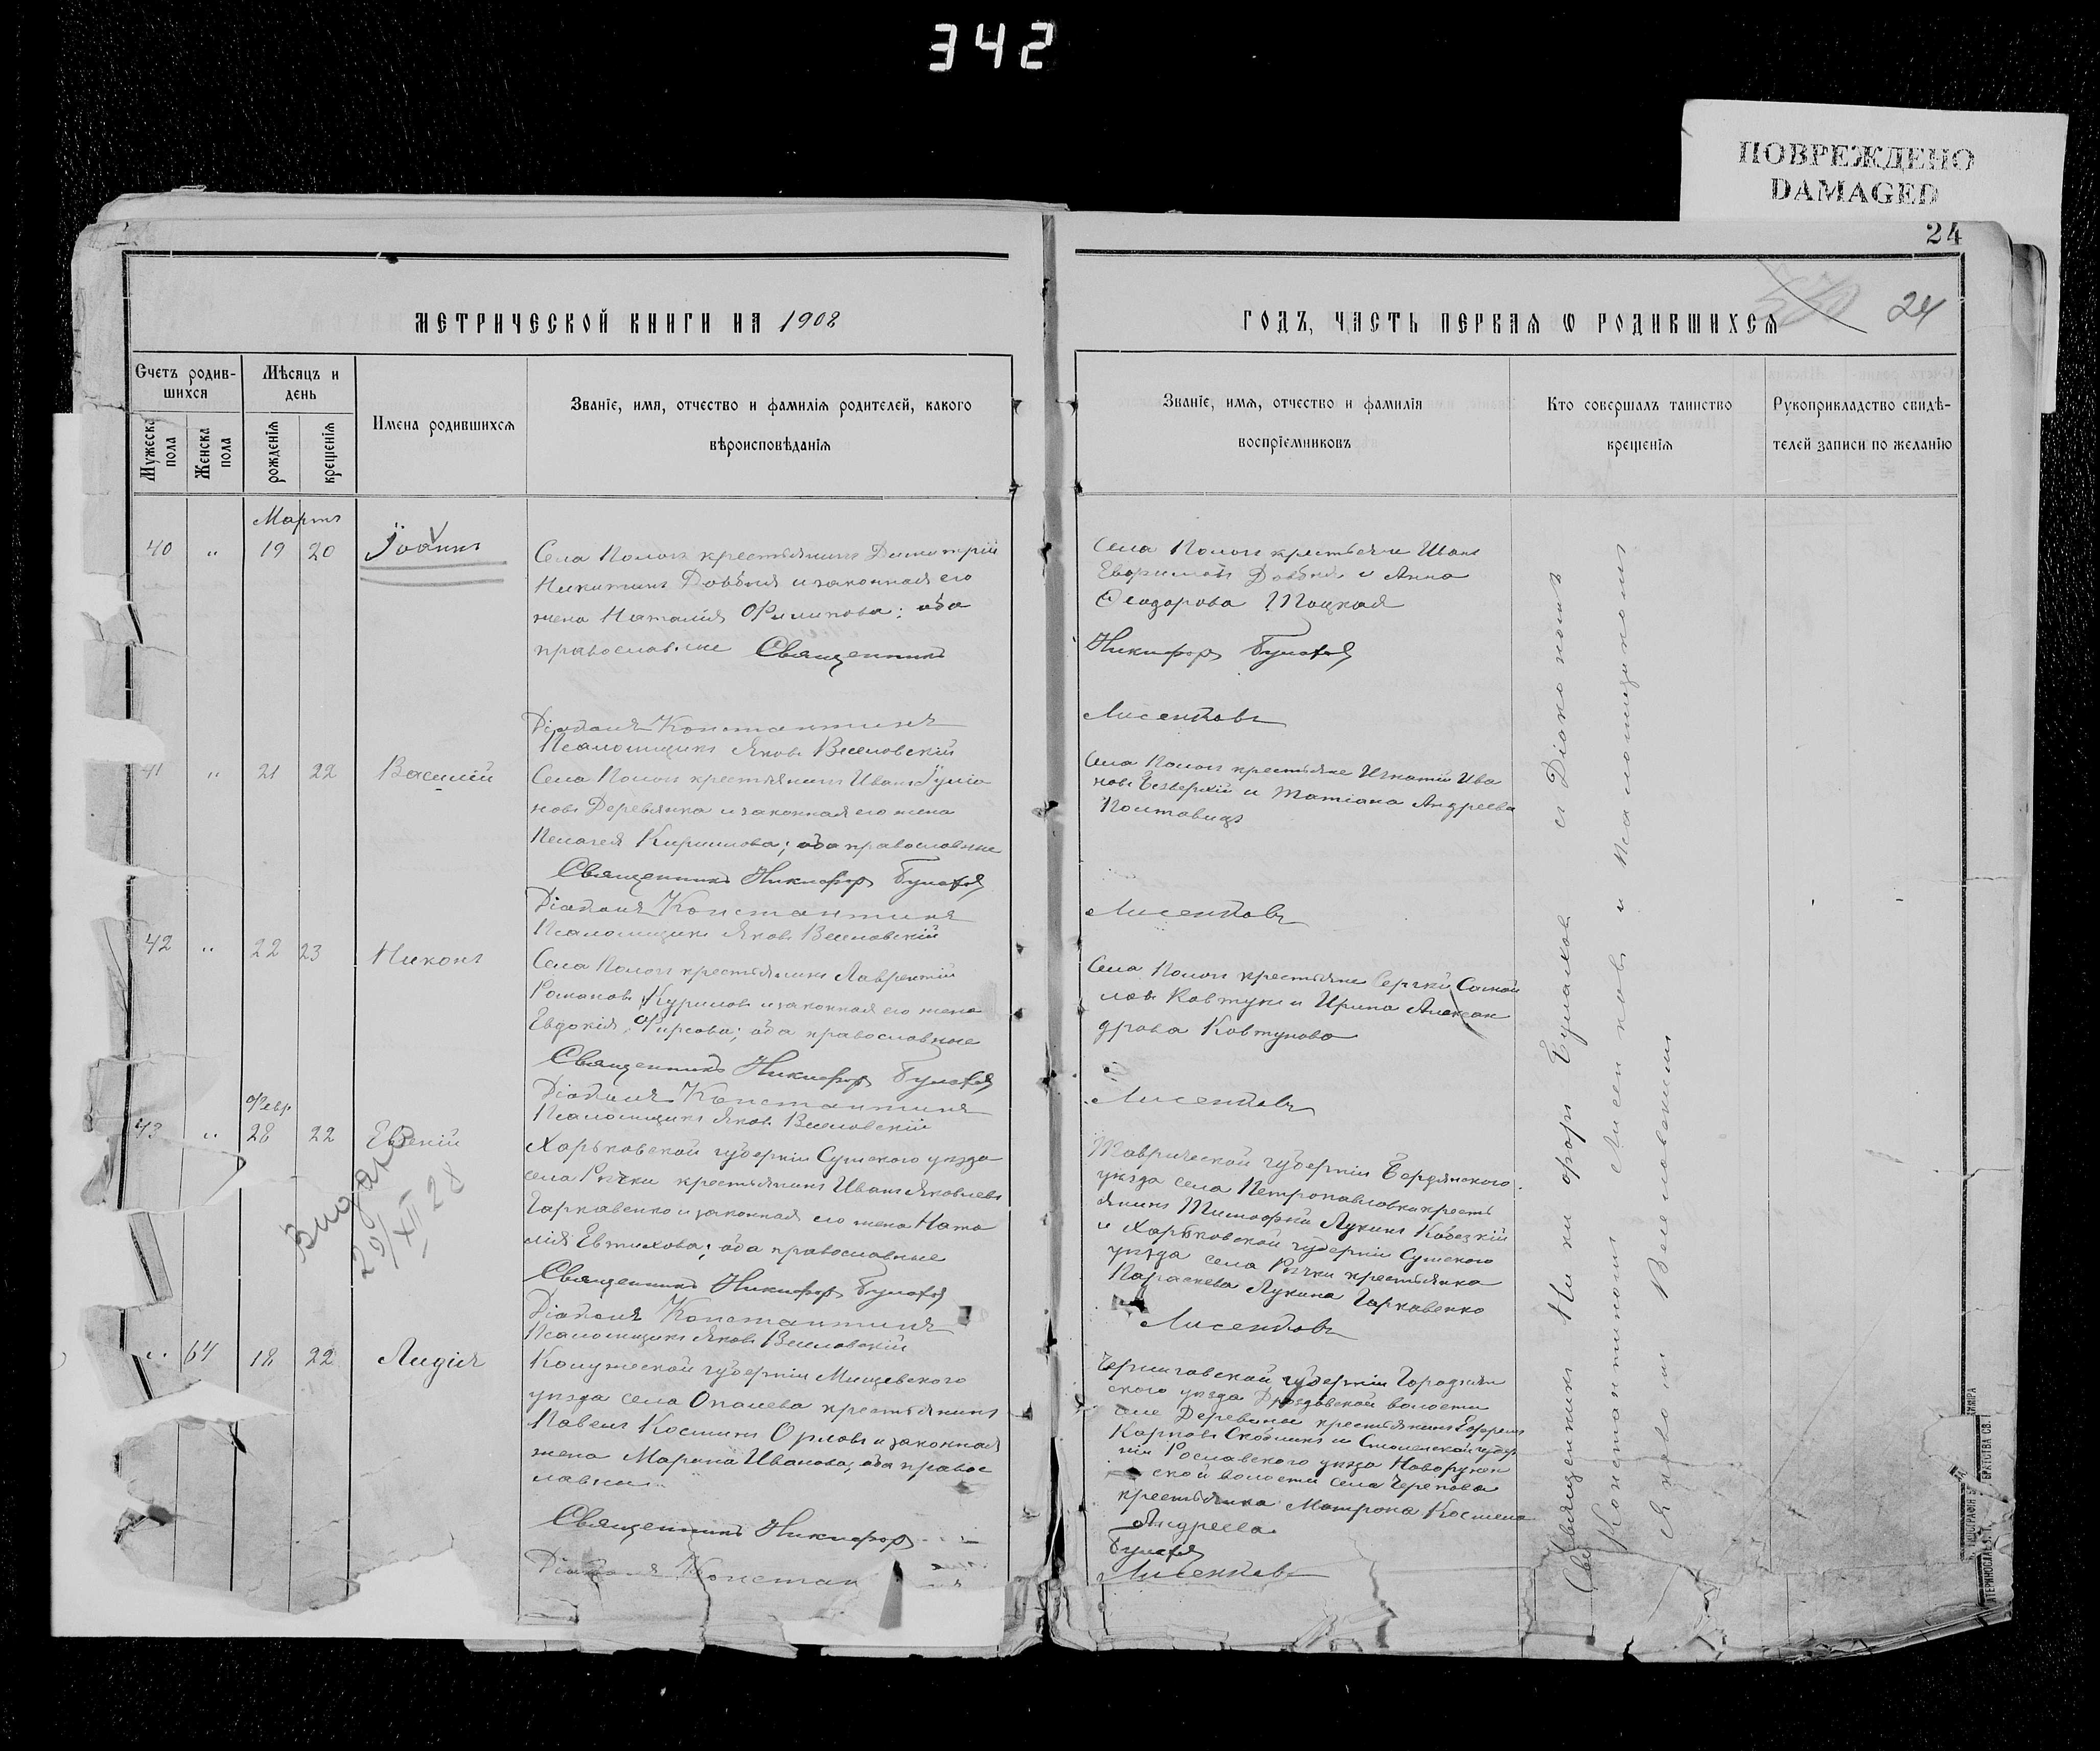 342
ПОВРЕЖДЕНО
DAMAGED
24
24
МЕТРИЧЕСКОЙ КНИГИ НА 1908
ГОДЪ, ЧАСТЬ ПЕРВАЯ Ѡ РОДИВШИХСЯ
Счетъ родив-
шихся
Мужеска
пола
Женска
пола
Мѣсяцъ и
день
рожденія
крещенія
Имена родившихся
Званіе, имя, отчество и фамилія родителей, какого
вѣроисповѣданія
Званіе, имя, отчество и фамилія
воспріемниковъ
Кто совершалъ таинство
крещенія
Рукоприкладство свидѣ-
телей записи по желанію
Мартъ
40 " 19 20 Іоаннъ
Села Пологъ крестьянинъ Димитрій
Никитинъ Довбня и законная его
жена Наталія Филипова; оба
православные Священникъ
Села Пологъ крестьяне Иванъ
Довбня и Анна
Ѳеодорова Троцкая
Никифоръ
Діаконъ Константинъ
Лисенковъ
Псаломщикъ Яковъ Веселовскій
41 " 21 22 Василій
Села Пологъ крестьянинъ Иванъ Іуліа
новъ Деревянка и законная его жена
Пелагея Кирилова; оба православные
Села Пологъ крестьяне Игнатій Ива
новъ и Татіана Андреева
Полтавецъ
Священникъ Никифоръ
Діаконъ Константинъ
Лисенковъ
Псаломщикъ Яковъ Веселовскій
42 " 22 23 Никонъ
Села Пологъ крестьянинъ Лаврентій
Романовъ Куриловъ и законная его жена
Евдокія Фирсова; оба православные
Села Пологъ крестьяне Сергѣй Самой
ловъ Ковтунъ и Ирина Алексан
дрова Ковтунова
Священникъ Никифоръ
Діаконъ Константинъ
Лисенковъ
Псаломщикъ Яковъ Веселовскій
Февр.
43 " 28 22 Евгеній
29/XII 28
Харьковской губерніи Сумскаго уѣзда
села Рѣчки крестьянинъ Иванъ Яковлевъ
Гаркавенко и законная его жена Ната
лія Евтихова; оба православные
Таврической губерніи Бердянского
уѣзда села Петропавловки кресть
янинъ Тимофей Лукинъ
и Харьковской губерніи Сумского
уѣзда села Рѣчки крестьянка
Параскева Лукина Гаркавенко
Священникъ Никифоръ
Діаконъ Константинъ
Лисенковъ
Псаломщикъ Яковъ Веселовскій
" 64 18 22 Лидія
Калужеской губерніи Мещевского
уѣзда села крестьянинъ
Павелъ Косминъ Орловъ и законная
жена Марина Иванова; оба правос
лавны
Черниговской губерніи Городнян
ского уѣзда Дроздовской волости
села Деревины крестьянинъ
Карповъ и Смоленской губер
ніи Рославского уѣзда
ской волости села
крестьянка Матрона
Андреева
Священникъ Никифоръ
Діаконъ Констан
Лисенковъ
Священникъ Никифоръ съ Діакономъ
Константиномъ Лисенковъ и Псаломщикомъ
Яковомъ Веселовскимъ